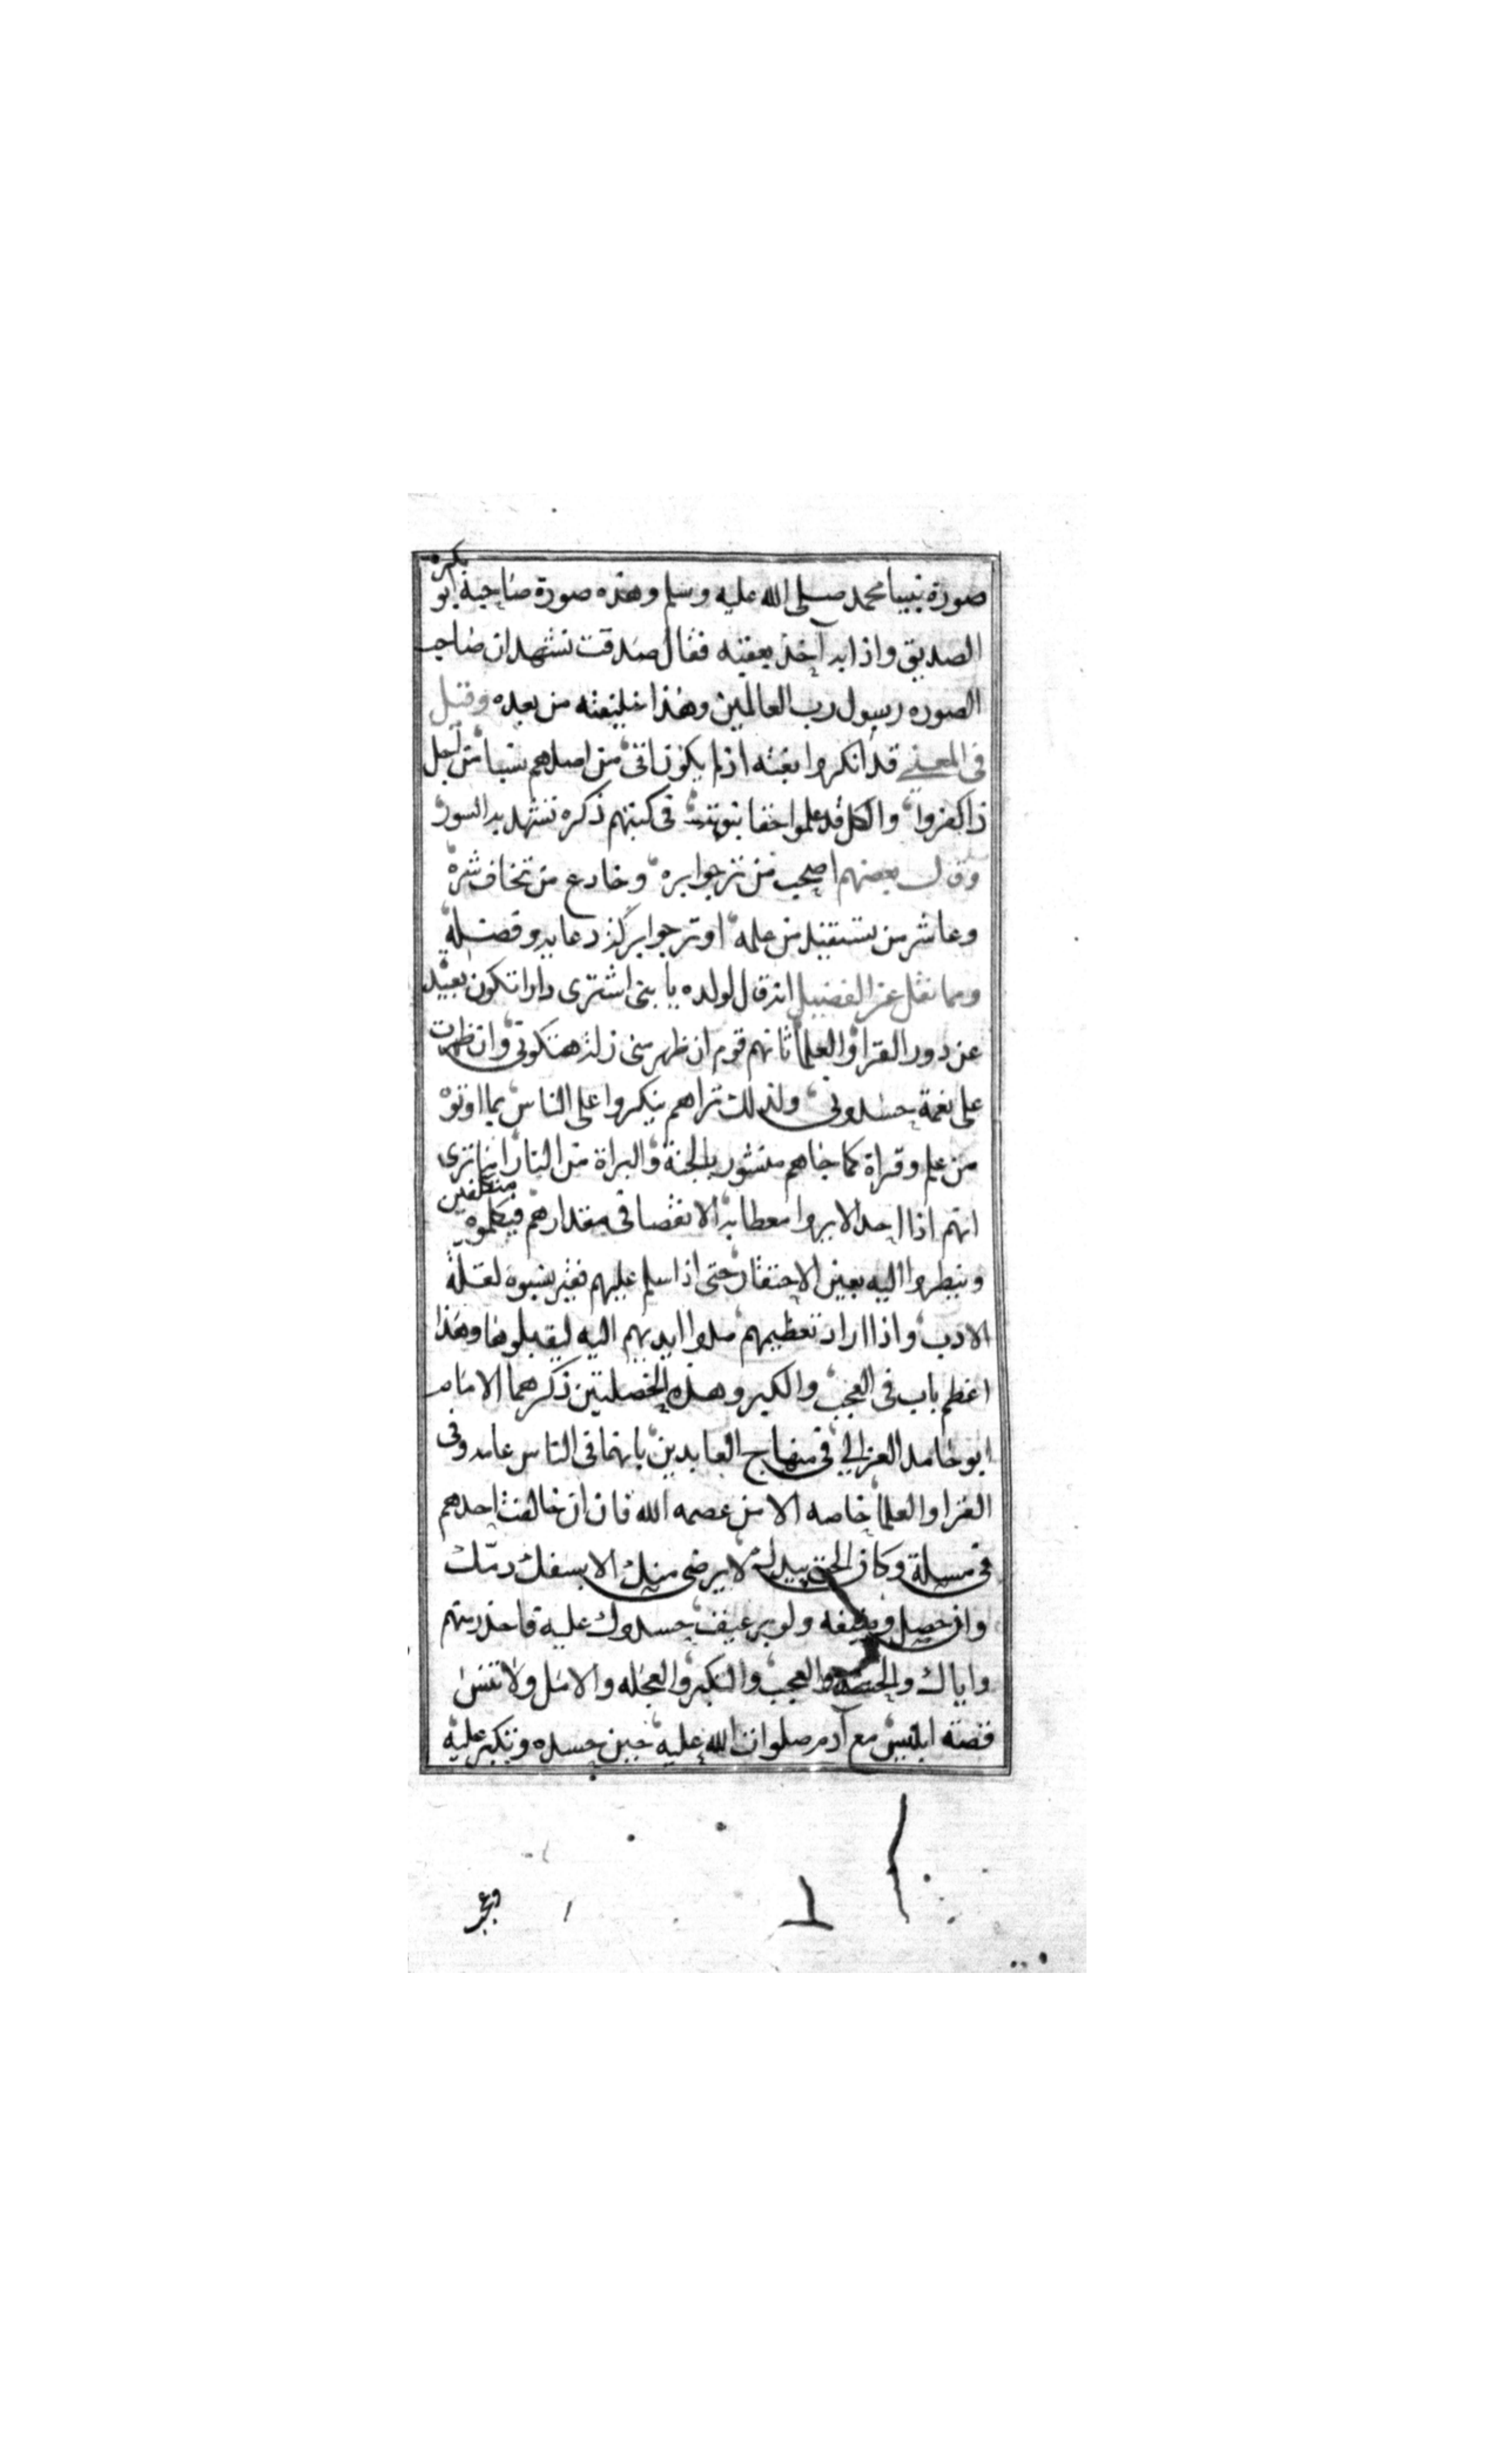 صورة نبينا محمد صلى الله عليه وسلم وهذه صورة صاحبه ابو بكره
الصديق واذا به آخذ بعقبه فقال صدقت نشهد ان صاحب
الصوره رسول رب العالمين وهذا خليفته من بعده وقيل
في المعنى قد انكروا بعثه اذ لم يكون اتى من اصلهم نسبا من اجل
ذا كفروا والكل قد علموا حقا نبوته في كتبهم ذكره تشهد به السور
وقال بعضهم اصحب من ترجوا بره وخادع من تخاف شره
وعاشر من تستقيد من علمه او ترجوا بركة دعايه وفضله
ومما نقل عن الفضيل انه قال لولده يا بنى اشترى دارا تكون بعيد
عن دور القرا والعلما فانهم قوم ان ظهر منى زلة هتكونى وان ظهرت
على نعمة حسدونى ولذلك تراهم ينكروا على الناس بما اوتوه
من علم وقراة كما جاهم منشور بالجنة والبراة من النار انما ترى
انهم اذا احد لا يروا معطا به الا نقصا في مقدارهم فيكلموه متكلفين
وينظروا اليه بعين الاحتقار حتى اذا سلم عليهم فقير ينسبوه لقلة
الادب واذا اراد تعظيمهم مدوا ايديهم اليه ليقبلوها وهذا
اعظم باب في العجب والكبر وهذه الخصلتين ذكرهما الامام
ابو حامد الغزالي في منهاج العابدين بانهما في الناس عامه وفى
القرا والعلما خاصه الا من عصمه الله فان ان خالفت احدهم
في مسيلة وكان الحق بيدك لا يرضى منك الا بسفك دمك
وان حصل وظيفه ولو برغيف حسدوك عليه فاحذر منهم
واياك والحسد والعجب والتكبر والعجله والامل ولا تنس
قصة ابليس مع آدم صلوات الله عليه حين حسده وتكبر عليه